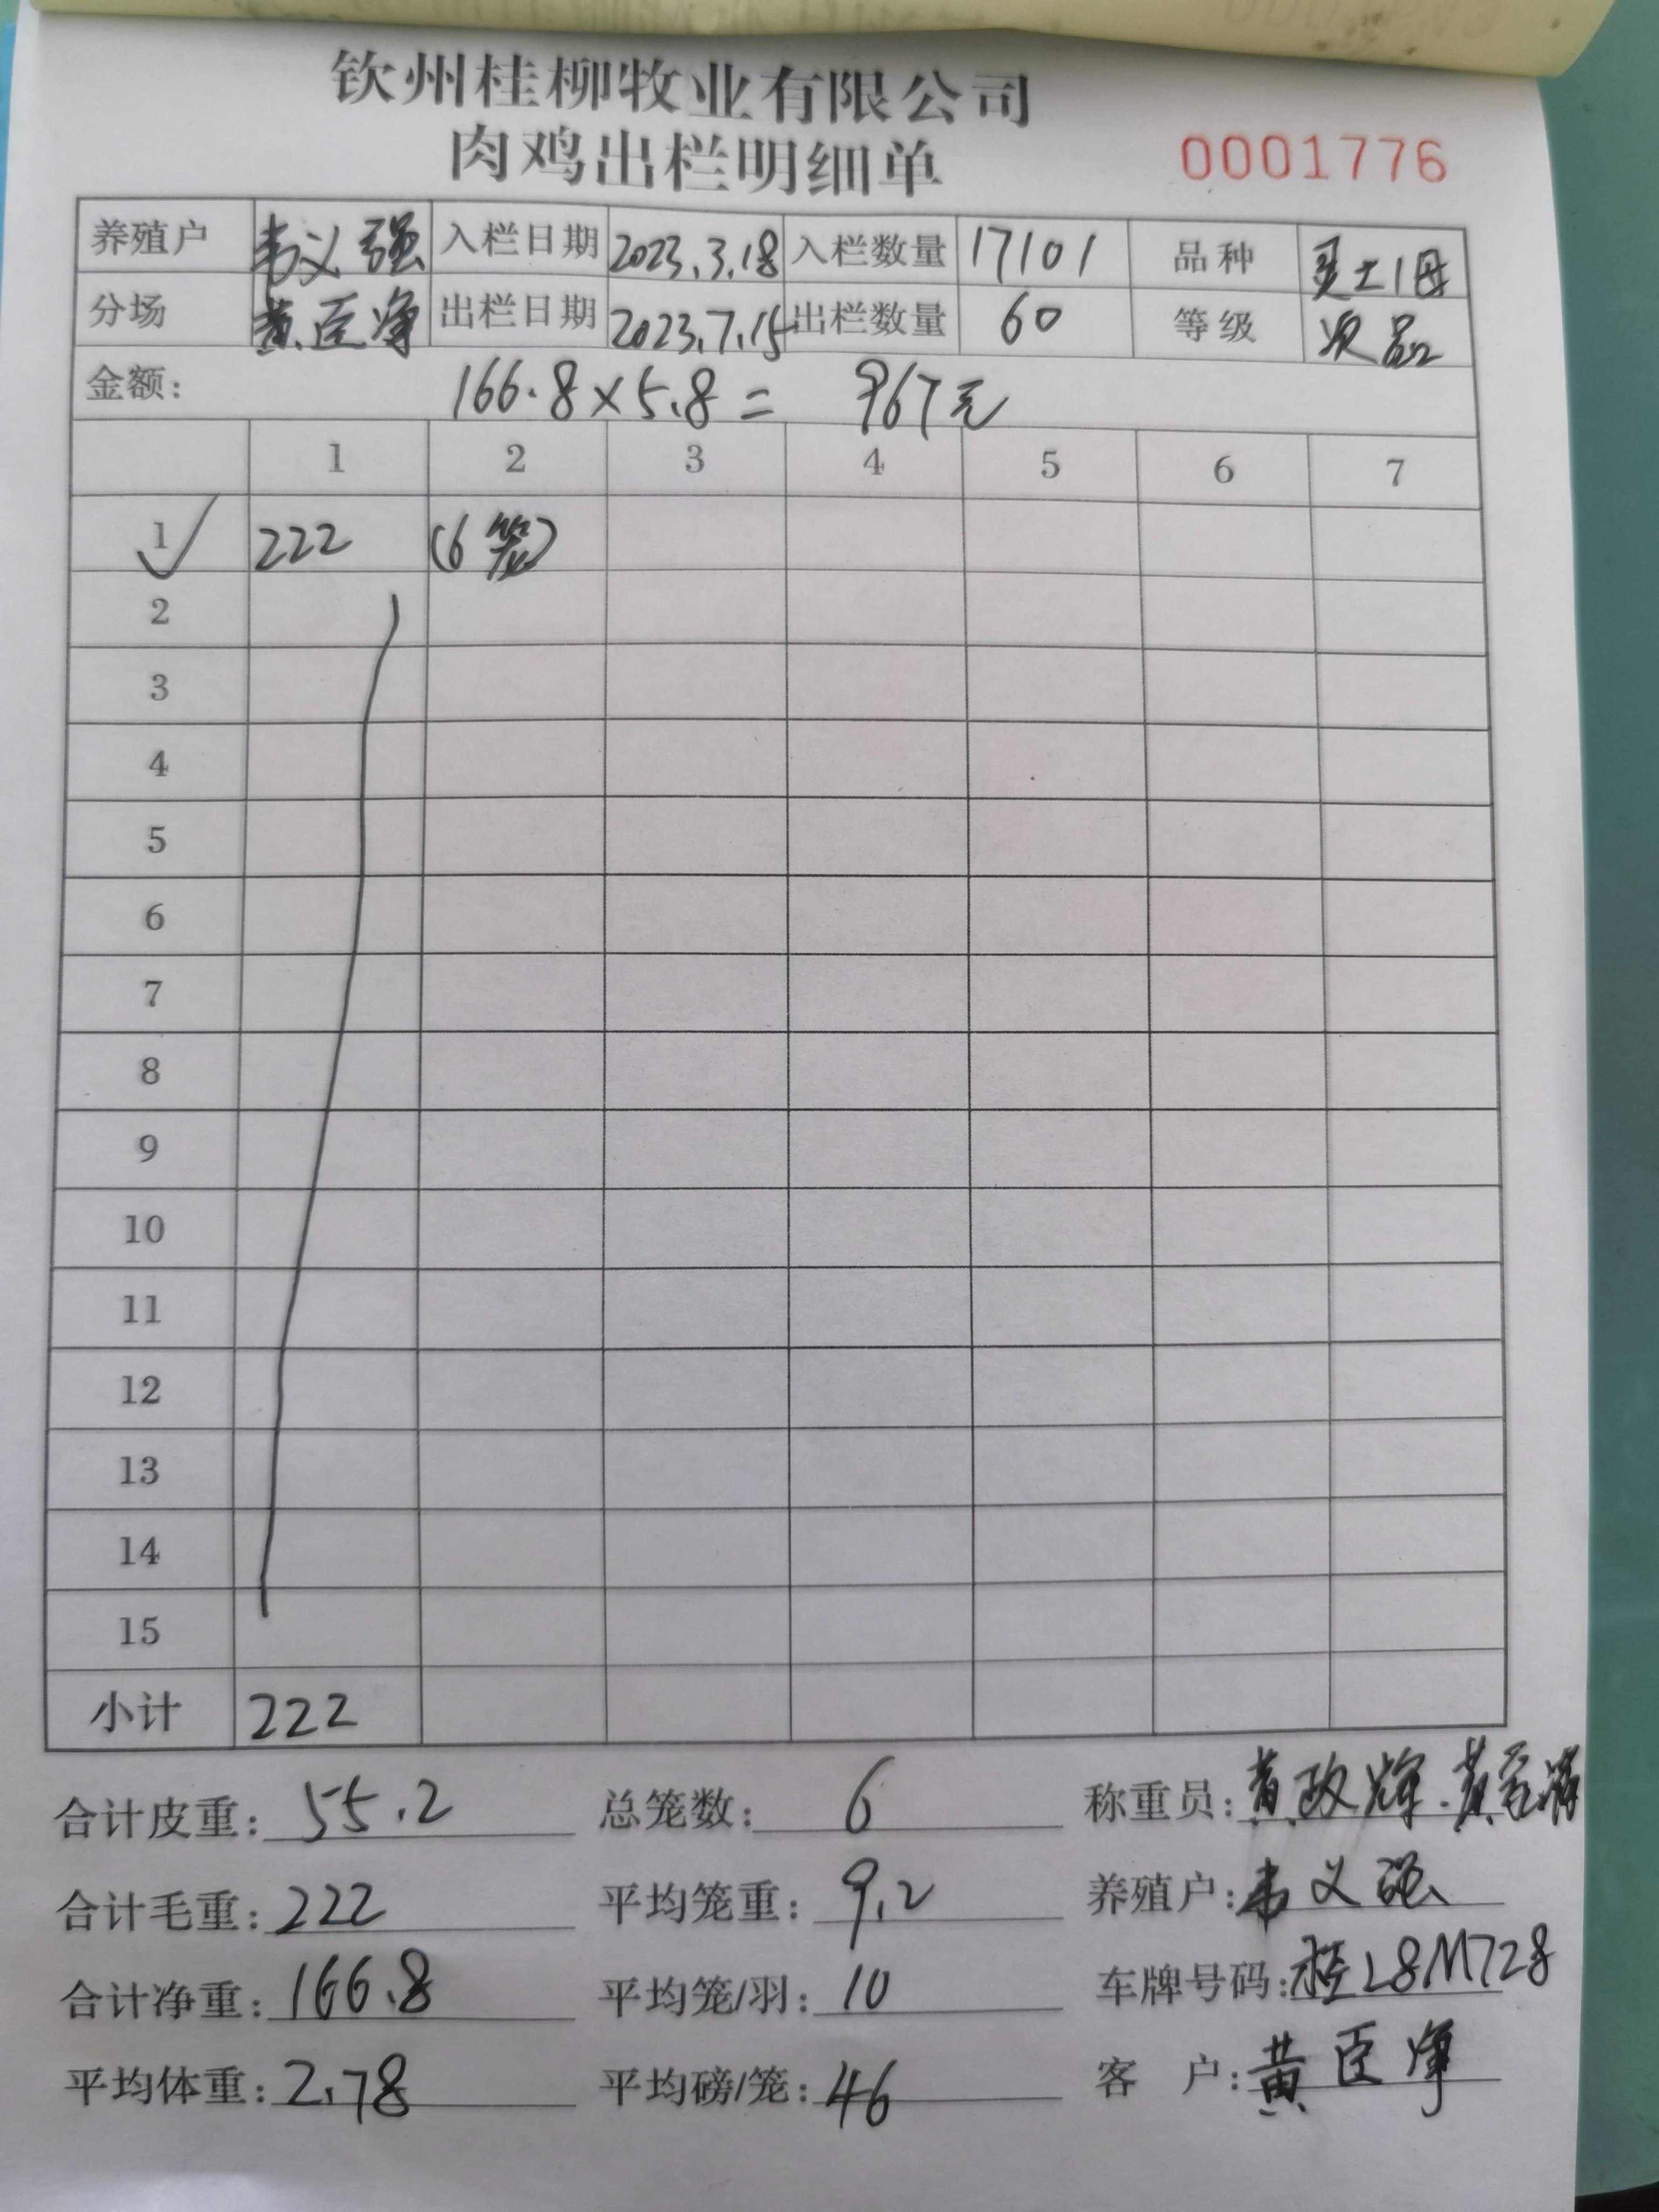 钦州桂柳牧业有限公司
肉鸡出栏明细单 0001776
养殖户 韦义强 入栏日期 2023.3.18 入栏数量 17101 品种 灵土1母
分场 黄臣净 出栏日期 2023.7.15 出栏数量 60 等级 次品
金额: 166.8×5.8= 967元
1 2 3 4 5 6 7
1 222 (6笼)
2
3
4
5
6
7
8
9
10
11
12
13
14
15
小计 222
合计皮重: 55.2 总笼数: 6 称重员: 黄政辉.黄
合计毛重: 222 平均笼重: 9.2 养殖户: 韦义强
合计净重: 166.8 平均笼/羽: 10 车牌号码: 桂L8M728
平均体重: 2.78 平均磅/笼: 46 客户: 黄臣净